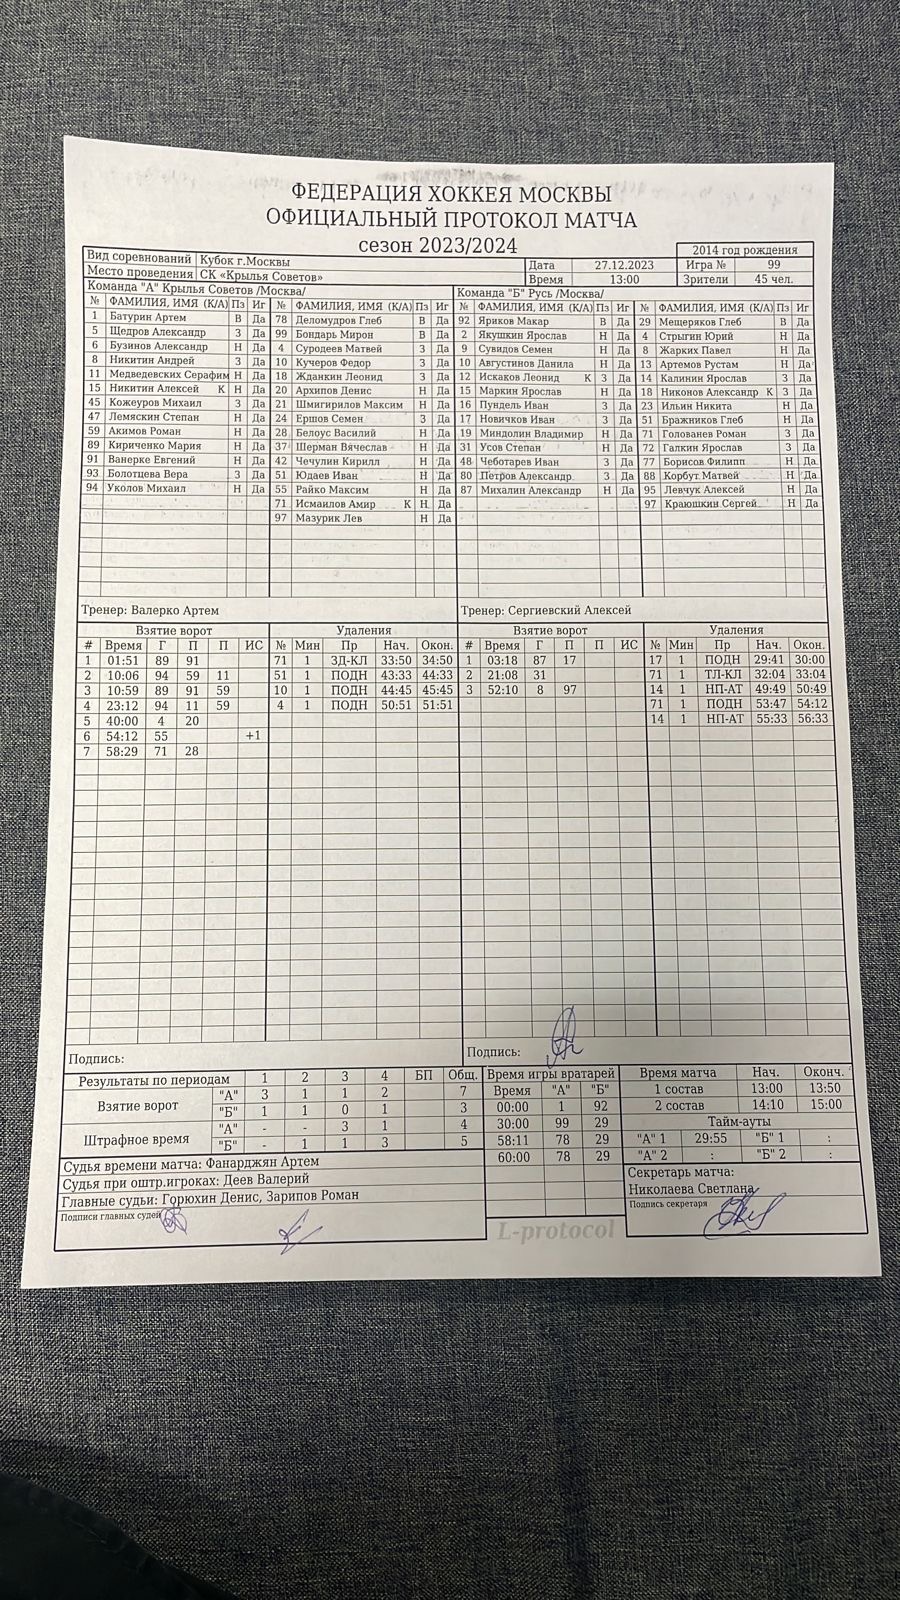 ФЕДЕРАЦИЯ ХОККЕЯ МОСКВЫ
ОФИЦИАЛЬНЫЙ ПРОТОКОЛ МАТЧА
сезон 2023/2024
2014 год рождения
Вид соревнований Кубок г.Москвы Дата 27.12.2023 Игра № 99
Место проведения СК «Крылья Советов» Время 13:00 Зрители 45 чел.
Команда "А" Крылья Советов /Москва/ Команда "Б" Русь /Москва/
№ ФАМИЛИЯ, ИМЯ (К/А) Пз Иг № ФАМИЛИЯ, ИМЯ (К/А) Пз Иг № ФАМИЛИЯ, ИМЯ (К/А) Пз Иг № ФАМИЛИЯ, ИМЯ (К/А) Пз Иг
1 Батурин Артем В Да 78 Деломудров Глеб В Да 92 Яриков Макар В Да 29 Мещеряков Глеб В Да
5 Щедров Александр З Да 99 Бондарь Мирон В Да 2 Якушкин Ярослав Н Да 4 Стрыгин Юрий Н Да
6 Бузинов Александр Н Да 4 Суродеев Матвей З Да 9 Сувидов Семен Н Да 8 Жарких Павел Н Да
8 Никитин Андрей З Да 10 Кучеров Федор З Да 10 Августинов Данила Н Да 13 Артемов Рустам Н Да
11 Медведевских Серафим Н Да 18 Жданкин Леонид З Да 12 Искаков Леонид К З Да 14 Калинин Ярослав З Да
15 Никитин Алексей К Н Да 20 Архипов Денис Н Да 15 Маркин Ярослав Н Да 18 Никонов Александр К З Да
45 Кожеуров Михаил З Да 21 Шмигирилов Максим Н Да 16 Пундель Иван З Да 23 Ильин Никита Н Да
47 Лемяскин Степан Н Да 24 Ершов Семен З Да 17 Новичков Иван З Да 51 Бражников Глеб Н Да
59 Акимов Роман Н Да 28 Белоус Василий Н Да 19 Миндолин Владимир Н Да 71 Голованев Роман З Да
89 Кириченко Мария Н Да 37 Шерман Вячеслав Н Да 31 Усов Степан Н Да 72 Галкин Ярослав З Да
91 Ванерке Евгений Н Да 42 Чечулин Кирилл Н Да 48 Чеботарев Иван З Да 77 Борисов Филипп Н Да
93 Болотцева Вера З Да 51 Юдаев Иван Н Да 80 Петров Александр З Да 88 Корбут Матвей Н Да
94 Уколов Михаил Н Да 55 Райко Максим Н Да 87 Михалин Александр Н Да 95 Левчук Алексей Н Да
71 Исмаилов Амир К Н Да 97 Краюшкин Сергей Н Да
97 Мазурик Лев Н Да
Тренер: Валерко Артем Тренер: Сергиевский Алексей
Взятие ворот Удаления Взятие ворот Удаления
# Время Г П П ИС № Мин Пр Нач. Окон. # Время Г П П ИС № Мин Пр Нач. Окон.
1 01:51 89 91 71 1 ЗД-КЛ 33:50 34:50 1 03:18 87 17 17 1 ПОДН 29:41 30:00
2 10:06 94 59 11 51 1 ПОДН 43:33 44:33 2 21:08 31 71 1 ТЛ-КЛ 32:04 33:04
3 10:59 89 91 59 10 1 ПОДН 44:45 45:45 3 52:10 8 97 14 1 НП-АТ 49:49 50:49
4 23:12 94 11 59 4 1 ПОДН 50:51 51:51 71 1 ПОДН 53:47 54:12
5 40:00 4 20 14 1 НП-АТ 55:33 56:33
6 54:12 55 +1
7 58:29 71 28
Подпись: Подпись:
Результаты по периодам 1 2 3 4 БП Общ. Время игры вратарей Время матча Нач. Оконч.
Взятие ворот "А" 3 1 1 2 7 Время "А" "Б" 1 состав 13:00 13:50
"Б" 1 1 0 1 3 00:00 1 92 2 состав 14:10 15:00
Штрафное время "А" - - 3 1 4 30:00 99 29 Тайм-ауты
"Б" - 1 1 3 5 58:11 78 29 "А" 1 29:55 "Б" 1 :
60:00 78 29 "А" 2 : "Б" 2 :
Судья времени матча: Фанарджян Артем
Судья при оштр.игроках: Деев Валерий
Главные судьи: Горюхин Денис, Зарипов Роман
Подписи главных судей
Секретарь матча:
Николаева Светлана
Подпись секретаря
L-protocol